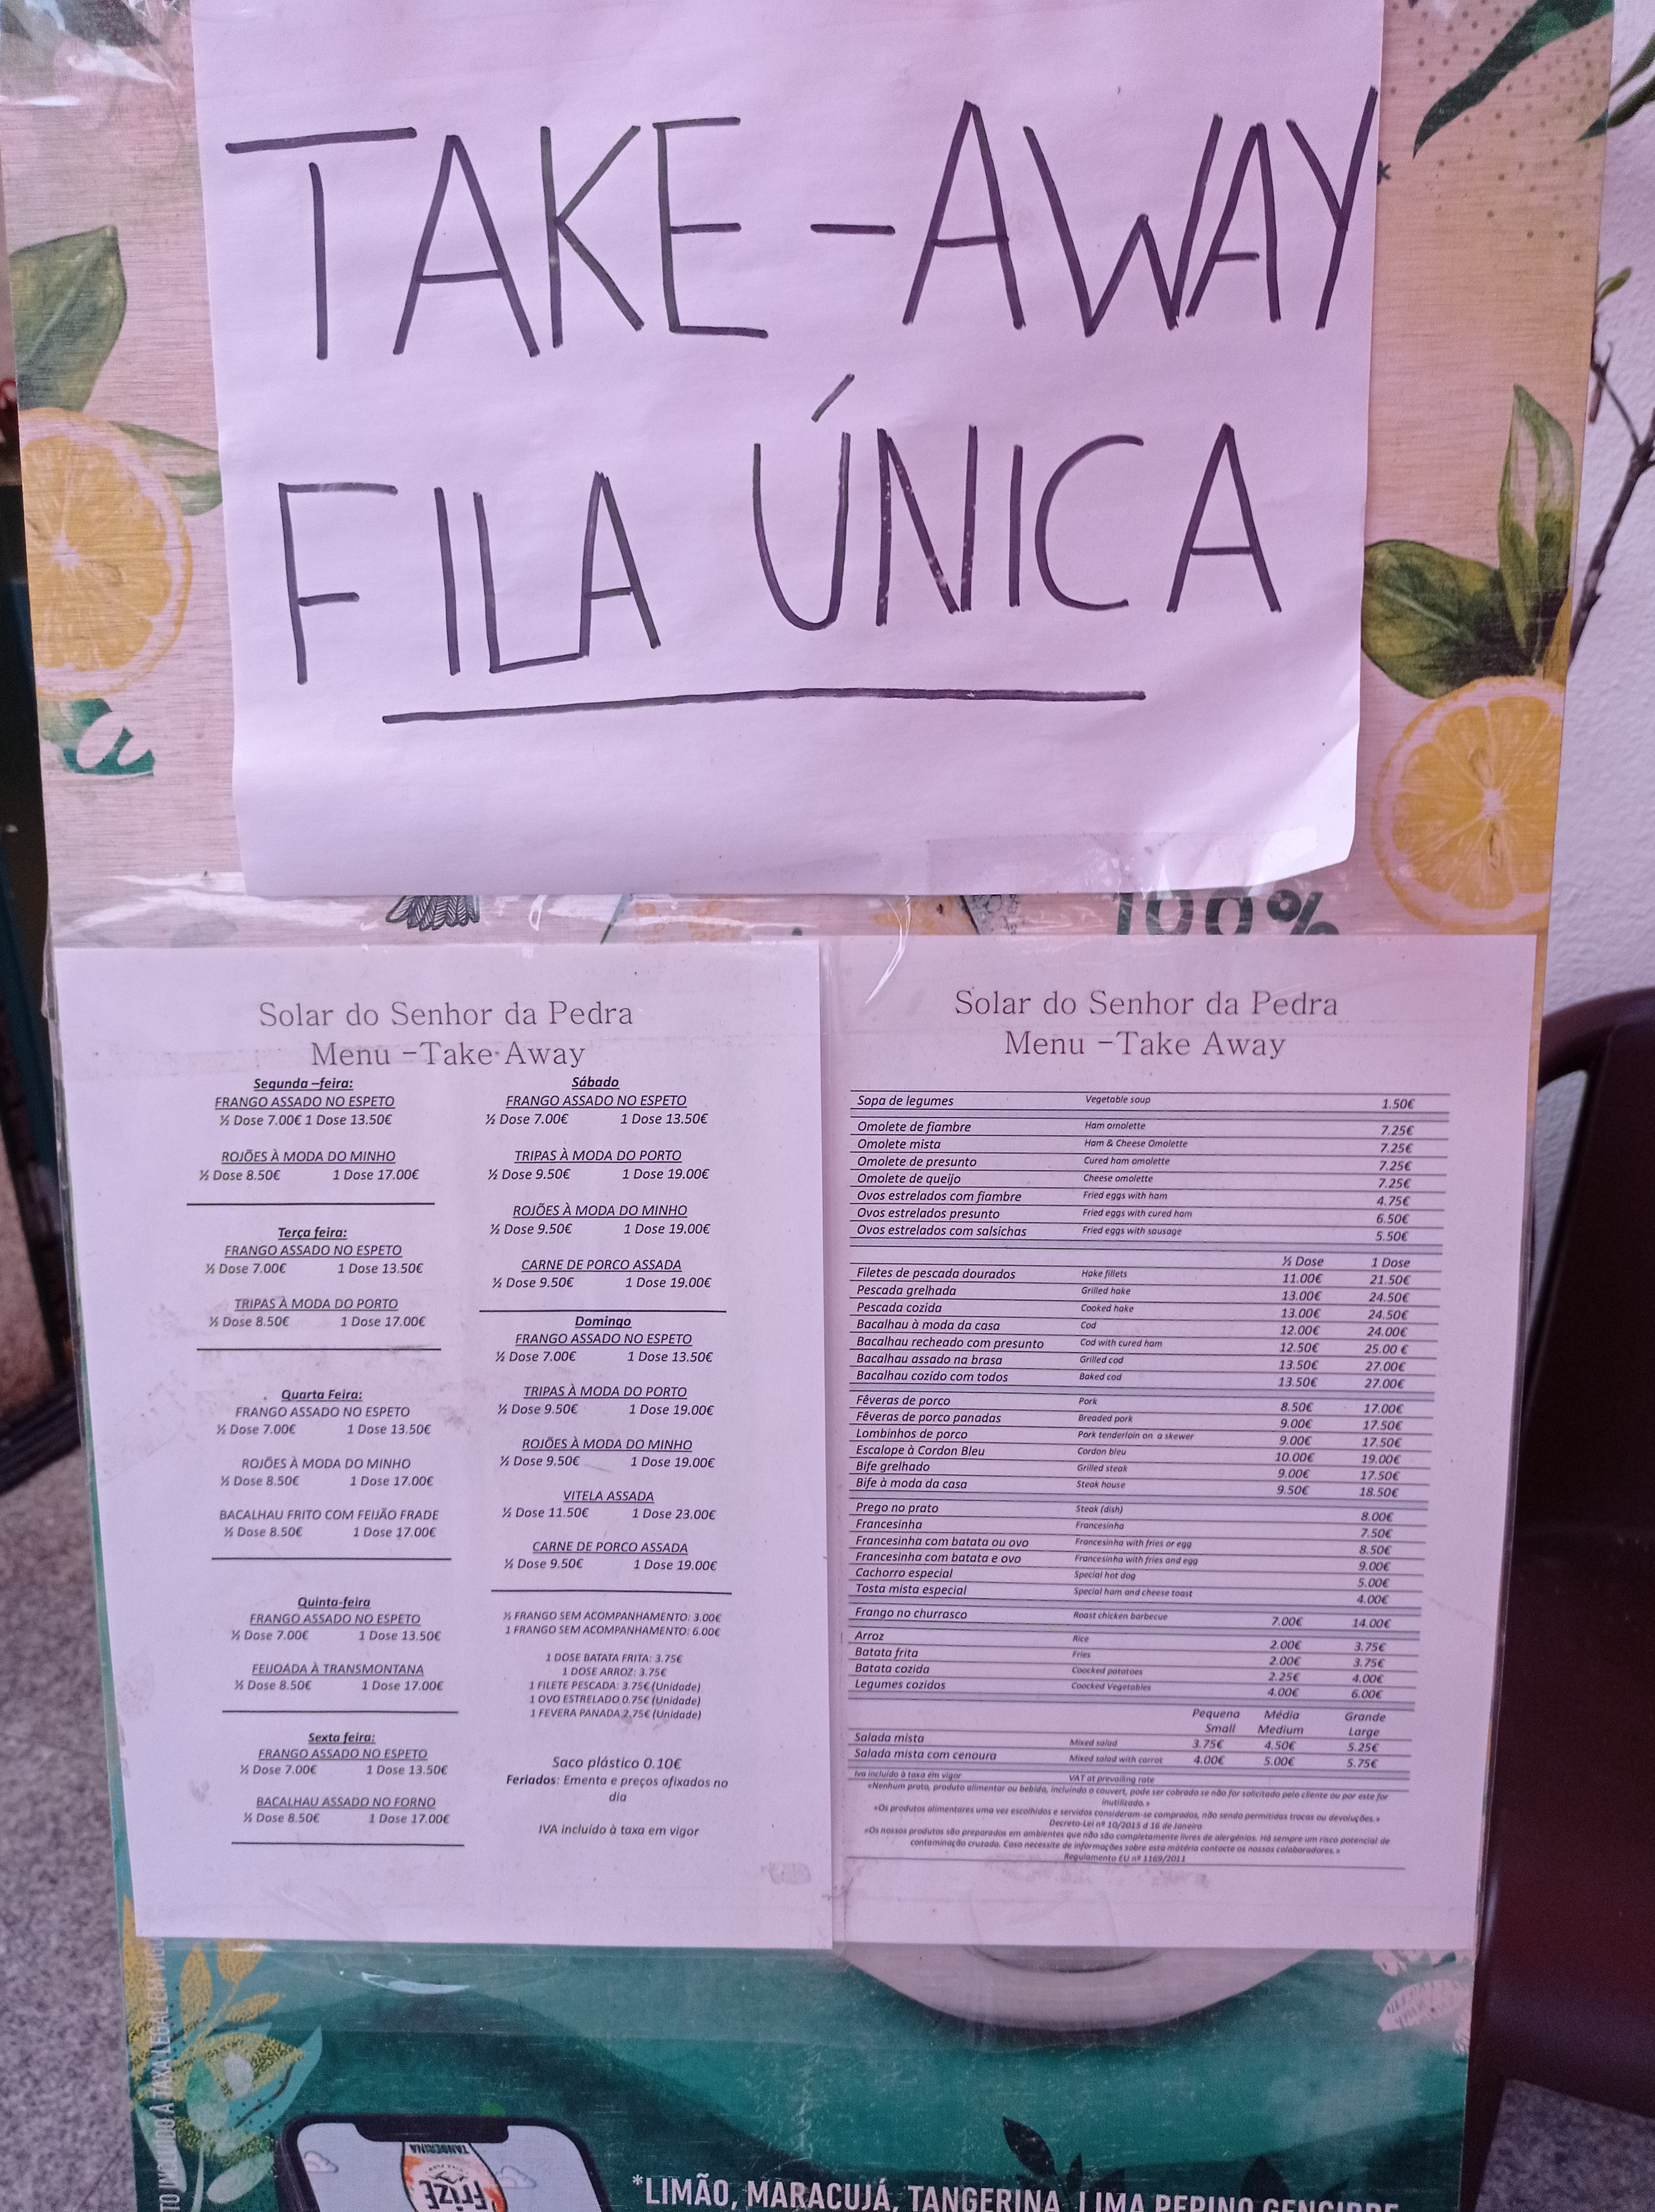 TAKE-AWAY
FILA ÚNICA
100%
Solar do Senhor da Pedra
Menu –Take Away
Segunda –feira:
FRANGO ASSADO NO ESPETO
½ Dose 7.00€ 1 Dose 13.50€
ROJÕES À MODA DO MINHO
½ Dose 8.50€ 1 Dose 17.00€
Terça feira:
FRANGO ASSADO NO ESPETO
½ Dose 7.00€ 1 Dose 13.50€
TRIPAS À MODA DO PORTO
½ Dose 8.50€ 1 Dose 17.00€
Quarta Feira:
FRANGO ASSADO NO ESPETO
½ Dose 7.00€ 1 Dose 13.50€
ROJÕES À MODA DO MINHO
½ Dose 8.50€ 1 Dose 17.00€
BACALHAU FRITO COM FEIJÃO FRADE
½ Dose 8.50€ 1 Dose 17.00€
Quinta-feira
FRANGO ASSADO NO ESPETO
½ Dose 7.00€ 1 Dose 13.50€
FEIJOADA À TRANSMONTANA
½ Dose 8.50€ 1 Dose 17.00€
Sexta feira:
FRANGO ASSADO NO ESPETO
½ Dose 7.00€ 1 Dose 13.50€
BACALHAU ASSADO NO FORNO
½ Dose 8.50€ 1 Dose 17.00€
Sábado
FRANGO ASSADO NO ESPETO
½ Dose 7.00€ 1 Dose 13.50€
TRIPAS À MODA DO PORTO
½ Dose 9.50€ 1 Dose 19.00€
ROJÕES À MODA DO MINHO
½ Dose 9.50€ 1 Dose 19.00€
CARNE DE PORCO ASSADA
½ Dose 9.50€ 1 Dose 19.00€
Domingo
FRANGO ASSADO NO ESPETO
½ Dose 7.00€ 1 Dose 13.50€
TRIPAS À MODA DO PORTO
½ Dose 9.50€ 1 Dose 19.00€
ROJÕES À MODA DO MINHO
½ Dose 9.50€ 1 Dose 19.00€
VITELA ASSADA
½ Dose 11.50€ 1 Dose 23.00€
CARNE DE PORCO ASSADA
½ Dose 9.50€ 1 Dose 19.00€
½ FRANGO SEM ACOMPANHAMENTO: 3.00€
1 FRANGO SEM ACOMPANHAMENTO: 6.00€
1 DOSE BATATA FRITA: 3.75€
1 DOSE ARROZ: 3.75€
1 FILETE PESCADA: 3.75€ (Unidade)
1 OVO ESTRELADO 0.75€ (Unidade)
1 FEVERA PANADA 2.75€ (Unidade)
Saco plástico 0.10€
Feriados: Ementa e preços afixados no
dia
IVA incluído à taxa em vigor
Solar do Senhor da Pedra
Menu –Take Away
Sopa de legumes Vegetable soup 1.50€
Omolete de fiambre Ham omolette 7.25€
Omolete mista Ham & Cheese Omolette 7.25€
Omolete de presunto Cured ham omolette 7.25€
Omolete de queijo Cheese omolette 7.25€
Ovos estrelados com fiambre Fried eggs with ham 4.75€
Ovos estrelados presunto Fried eggs with cured ham 6.50€
Ovos estrelados com salsichas Fried eggs with sausage 5.50€
½ Dose 1 Dose
Filetes de pescada dourados Hake fillets 11.00€ 21.50€
Pescada grelhada Grilled hake 13.00€ 24.50€
Pescada cozida Cooked hake 13.00€ 24.50€
Bacalhau à moda da casa Cod 12.00€ 24.00€
Bacalhau recheado com presunto Cod with cured ham 12.50€ 25.00 €
Bacalhau assado na brasa Grilled cod 13.50€ 27.00€
Bacalhau cozido com todos Baked cod 13.50€ 27.00€
Fêveras de porco Pork 8.50€ 17.00€
Fêveras de porco panadas Breaded pork 9.00€ 17.50€
Lombinhos de porco Pork tenderloin on a skewer 9.00€ 17.50€
Escalope à Cordon Bleu Cordon bleu 10.00€ 19.00€
Bife grelhado Grilled steak 9.00€ 17.50€
Bife à moda da casa Steak house 9.50€ 18.50€
Prego no prato Steak (dish) 8.00€
Francesinha Francesinha 7.50€
Francesinha com batata ou ovo Francesinha with fries or egg 8.50€
Francesinha com batata e ovo Francesinha with fries and egg 9.00€
Cachorro especial Special hot dog 5.00€
Tosta mista especial Special ham and cheese toast 4.00€
Frango no churrasco Roast chicken barbecue 7.00€ 14.00€
Arroz Rice 2.00€ 3.75€
Batata frita Fries 2.00€ 3.75€
Batata cozida Coocked potatoes 2.25€ 4.00€
Legumes cozidos Coocked Vegetables 4.00€ 6.00€
Pequena Média Grande
Small Medium Large
Salada mista Mixed salad 3.75€ 4.50€ 5.25€
Salada mista com cenoura Mixed salad with carrot 4.00€ 5.00€ 5.75€
Iva incluído à taxa em vigor VAT at prevailing rate
«Nenhum prato, produto alimentar ou bebida, incluindo o couvert, pode ser cobrado se não for solicitado pelo cliente ou por este for
inutilizado.»
«Os produtos alimentares uma vez escolhidos e servidos consideram-se comprados, não sendo permitidas trocas ou devoluções.»
Decreto-Lei nº 10/2015 d 16 de Janeiro
«Os nossos produtos são preparados em ambientes que não são completamente livres de alergénios. Há sempre um risco potencial de
contaminação cruzada. Caso necessite de informações sobre esta matéria contacte os nossos colaboradores.»
Regulamento EU nº 1169/2011
TANGERINA
Frize
*LIMÃO, MARACUJÁ, TANGERINA, LIMA PEPINO GENGIBRE